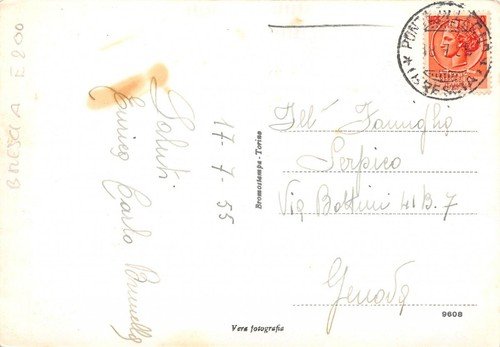 BRESCIA E200
Saluti
Enrico Carlo Brunella
17-7-55
Bromostampa - Torino
Vera fotografia
PONTE
(BRESCIA)
Ill Famiglia
Serpico
Via Bottini 41 B. 7
Genova
9608